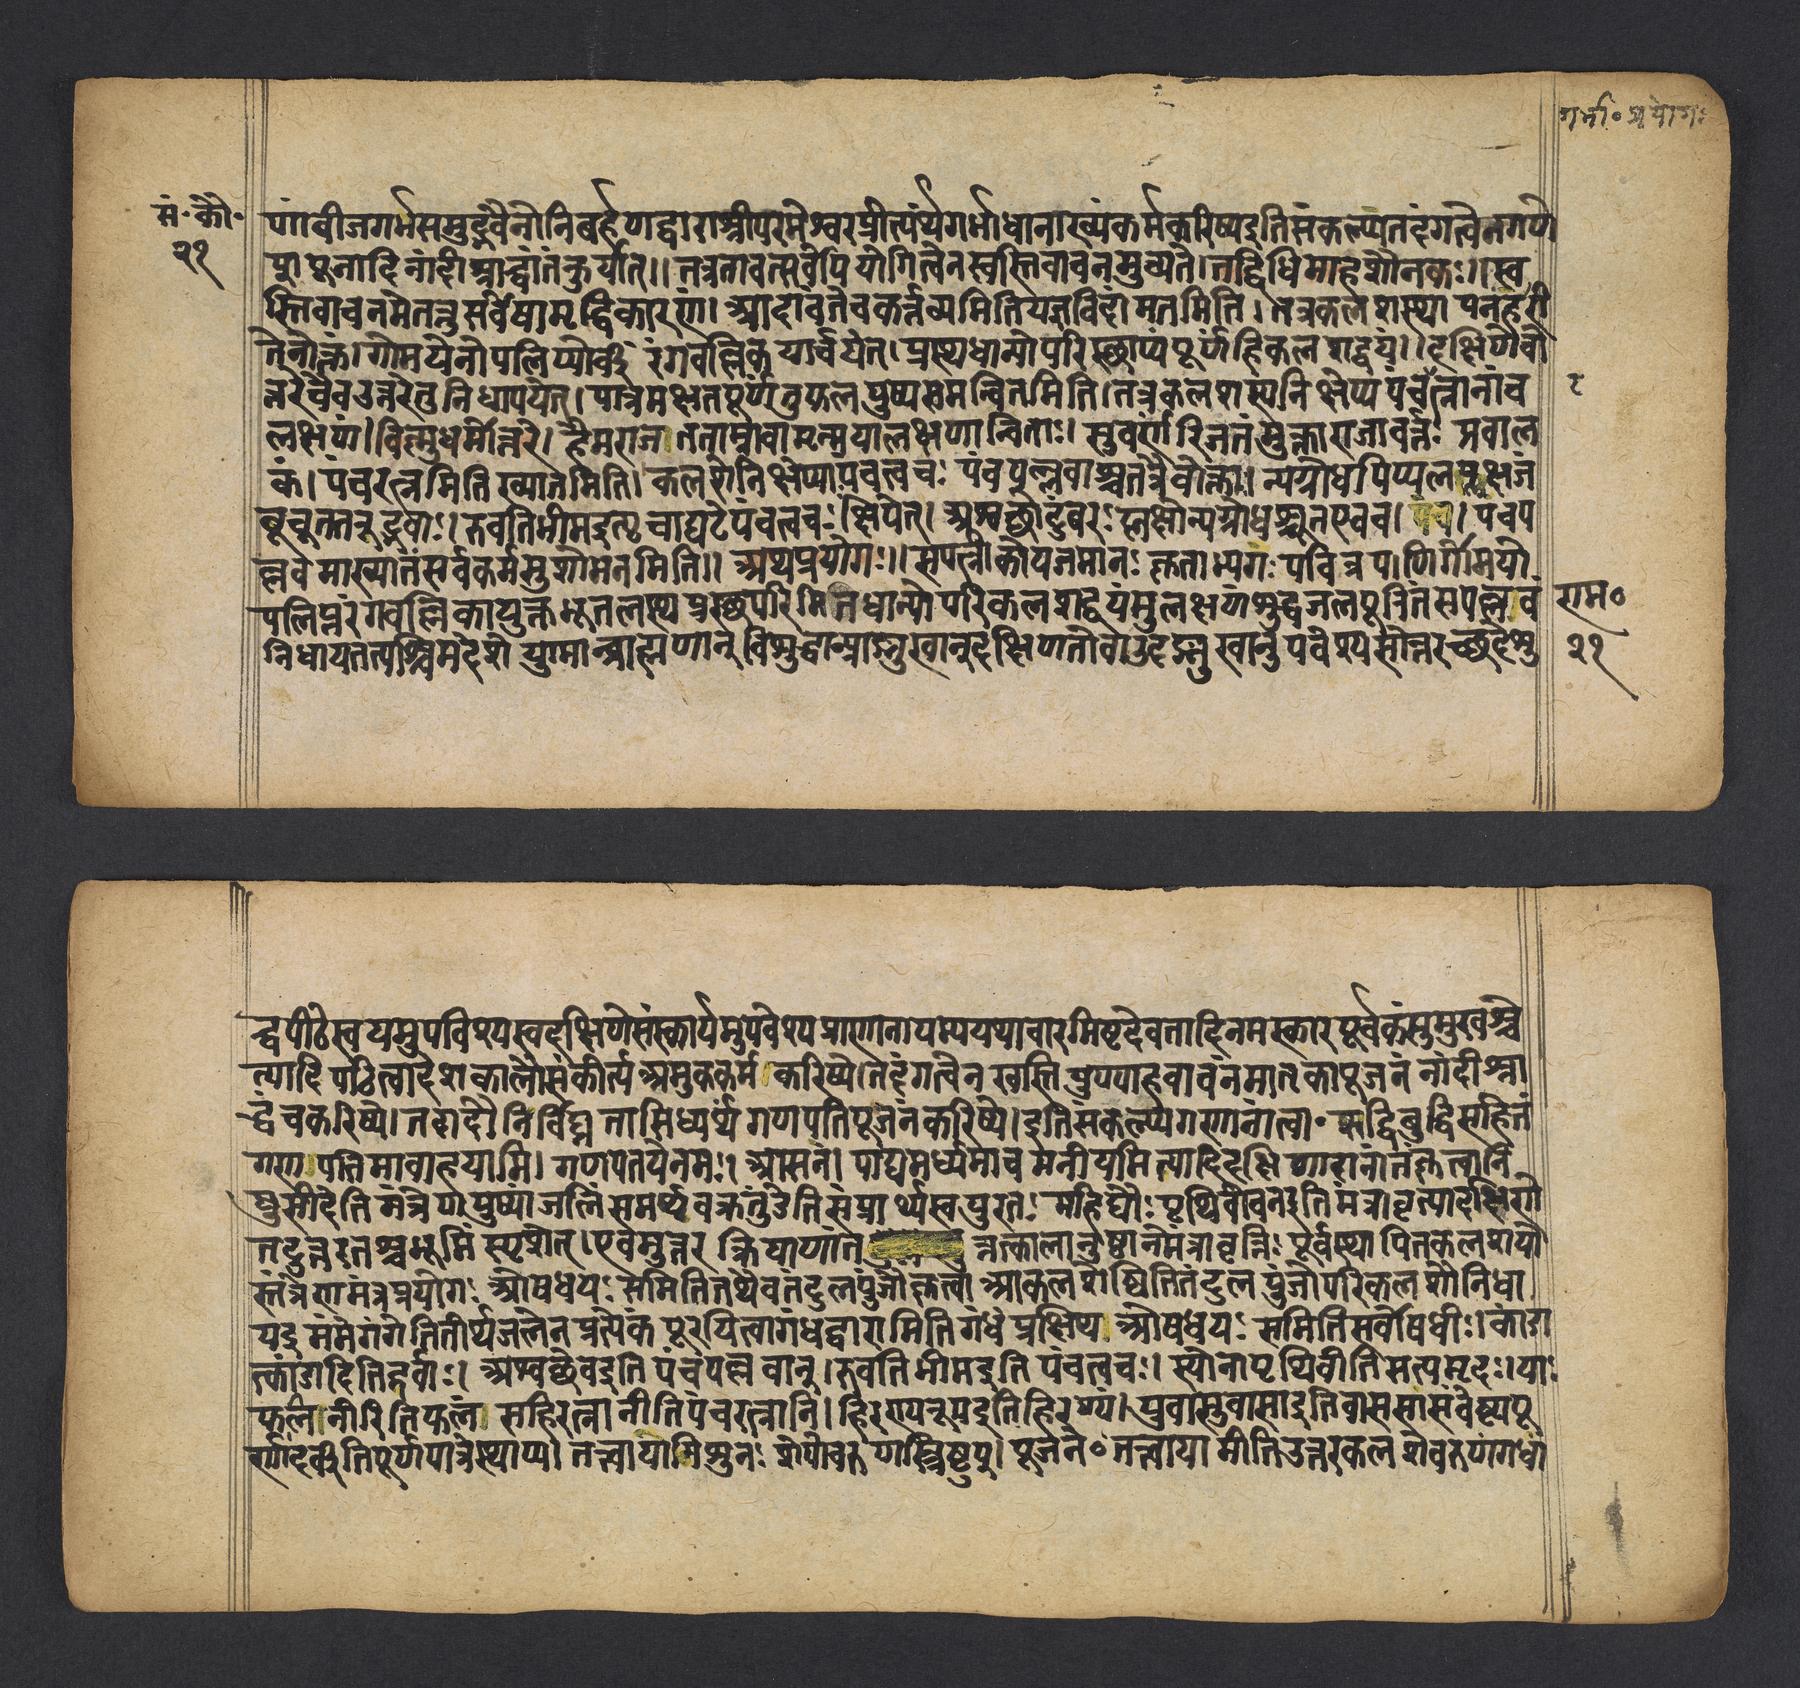 गर्भा॰ प्रयोगः
सं॰ कौ॰
२१
पणबीजगर्भसमुद्भवैनोनिबर्हणद्वाराश्रीपरमेश्वरप्रीत्यर्थंगर्भाधानाख्यंकर्मकरिष्यइतिसंकल्प्यतदंगत्वेनगणे
पूजनादि नांदीश्राद्धांतंकुर्यात्।। तत्रतावत्सर्वोपयोगित्वेनस्वस्तिवाचनमुच्यते। तद्विधिमाह शौनकः।।स्व
स्तिवाचनमेतत्तुसर्वेषामृद्धिकारणं। आदावंतेचकर्त्तव्यमितियज्ञविदां मतमिति। तत्रकलशस्थापनंहरी
तेनोक्तं। गोमयेनोपलिप्योर्वीं रंगवल्लिकयार्चयेत्। प्रस्थधान्योपरिस्थाप्यंपूर्णंहिकलशद्वयं।। दक्षिणेचो
त्तरेचैवउत्तरेतुनिधापयेत्। पात्रमक्षतपूर्णंतुफलपुष्पसमन्वितमिति। तत्रकलशस्यनिक्षेप्यपंचरत्नानांच
लक्षणं। विष्णुधर्मोत्तरे। हैमराजतताम्रावामृन्मयालक्षणान्विताः। सुवर्णंरजतंमुक्ताराजावर्त्तंप्रवाल
कं। पंचरत्नमिति ख्यातमिति। कलशेनिक्षेप्यापंचत्वचः पंचपल्लवाश्चतत्रैवोक्ताः। न्यग्रोधपिप्पलप्लक्षजं
बूचूततरूद्भवाः। तवतिभीमइत्यृचाद्यघटेपंचत्वचः क्षिपेत्। अश्वत्थोदुंबरः प्लक्षोन्यग्रोधश्चूतएवच। पंचप
ल्लवमाख्यातंसर्वकर्मसुशोभनमिति।। अथप्रयोगः।। सपत्नीकोयजमानः कृताभ्यंगः पवित्रपाणिर्गोमयो
पलिप्तरंगवल्लिकायुक्तभूतलस्थप्रस्थपरिमितधान्योपरिकलशद्वयंसुलक्षणंशुद्धजलपूरितंसपल्लवं
निधायतत्पश्चिमदेशेयुग्मान्ब्राह्मणान् विशुद्धान्प्राङ्मुखान्दक्षिणतोवाउदङ्मुखानुपवेश्यसोत्तरच्छदेशु
राम॰
२१
द्धपीठेस्वयमुपविश्यस्वदक्षिणेसंस्कार्यमुपवेश्यप्राणानायम्ययथाचारमिष्टदेवतादिनमस्कारपूर्वकंसुमुखश्चे
त्यादि पठित्वादेशकालौसंकीर्त्यअमुककर्मकरिष्ये। तदंगत्वेनस्वस्तिपुण्याहवाचनंमातृकापूजनंनांदीश्रा
द्धंचकरिष्ये। तत्रादौनिर्विघ्नतासिध्यर्थंगणपतिपूजनंकरिष्ये। इतिसंकल्प्यगणानांत्वा॰ ऋद्धिबुद्धिसहितं
गणपतिमावाहयामि। गणपतयेनमः। आसनं। पाद्यमर्घ्यमाचमनीयमित्यादिदक्षिणादानांतंकृत्वानि
षुसीदेतिमंत्रेणपुष्पांजलिंसमर्प्यवक्रतुंडेतिसंप्रार्थ्यस्वपुरतः महीद्यौः पृथिवीचनइतिमंत्रावृत्त्यादक्षिणे
तदुत्तरतश्चभूमिंस्पृशेत्। एवमुत्तर क्रियाणांत त्तत्कालानुष्ठानेमंत्रावृत्तिः पूर्वस्थापितकलशयो
स्तंत्रेणमंत्रप्रयोगः ओषधयः समितितथैवतंदुलपुंजौकृत्वा आकलशेष्वितितंदुलपुंजोपरिकलशौनिधा
यइमंमेगंगेतितीर्थजलेनप्रत्येकंपूरयित्वागंधद्वारामितिगंधंप्रक्षिप्य ओषधयः समितिसर्वौषधीः। कांडा
त्कांडादितिदूर्वाः। अश्वत्थेवइतिपंचपल्लवान्। तवतिभीमइतिपंचत्वचः। स्योनापृथिवीतिसप्तमृदः। याः
फलिनीरितिफलं। सहिरत्नानीतिपंचरत्नानि। हिरण्यरूपइतिहिरण्यं। युवासुवासाइतिवाससासंवेष्ट्यपू
र्णादर्वीतिपूर्णपात्रंस्थाप्य। तत्त्वायामिशुनः शेपोवरुणस्त्रिष्टुप्। पूजने॰ तत्त्वायामीतिउत्तरकलशेवरुणंगंधा